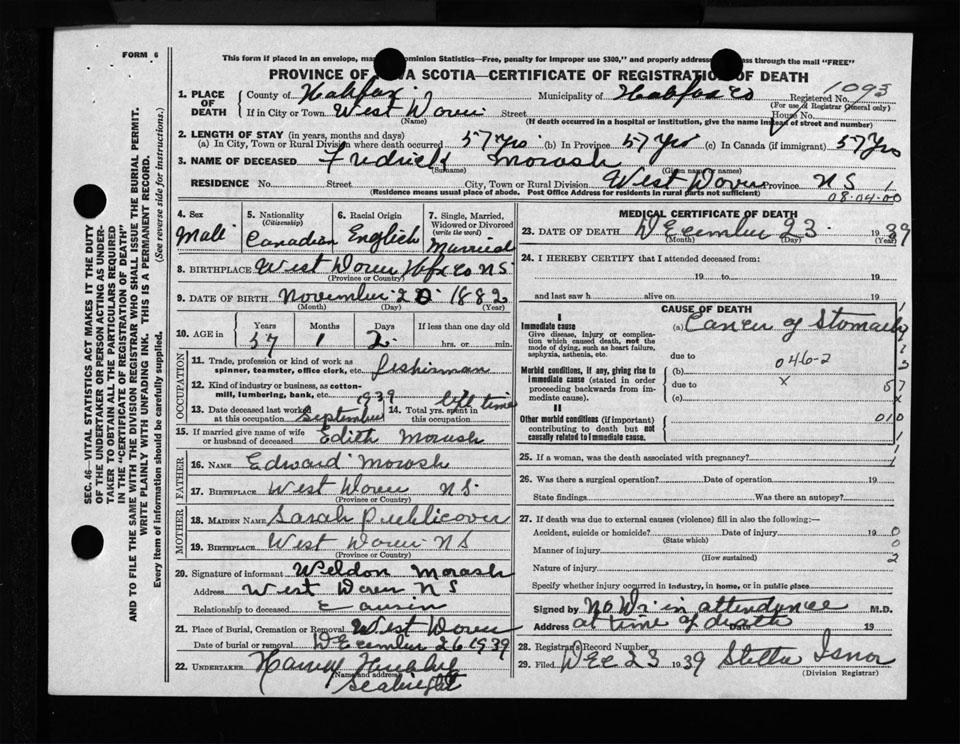 FORM 6
This form if placed in an envelope, ominion Statistics—Free, penalty for improper use $300," and properly addresse ss through the mail "FREE"
PROVINCE OF VA SCOTIA—CERTIFICATE OF REGISTRATION OF DEATH
1093
1. PLACE OF DEATH
County of Halifax Municipality of Halifax Co Registered No.
(For use of Registrar General only)
If in City or Town West Dover House No.
(Name) (If death occurred in a hospital or institution, give the name instead of street and number)
2. LENGTH OF STAY (in years, months and days)
(a) In City, Town or Rural Division where death occurred 57 Yrs (b) In Province 57 Yrs (c) In Canada (if immigrant) 57 Yrs
3. NAME OF DECEASED Fredrick Morash
(Surname) (Given name or names)
RESIDENCE No. Street City, Town or Rural Division West Dover Province N S 1
(Residence means usual place of abode. Post Office Address for residents in rural parts not sufficient)
08.04.00
4. Sex Male
5. Nationality (Citizenship) Canadian
6. Racial Origin English
7. Single, Married, Widowed or Divorced (write the word) Married
8. BIRTHPLACE West Dover Hfx Co N S
(Province or Country)
9. DATE OF BIRTH November 20 1882
(Month) (Day) (Year)
10. AGE in Years Months Days If less than one day old
57 1 2 hrs. or min.
OCCUPATION
11. Trade, profession or kind of work as
spinner, teamster, office clerk, etc. fisherman
12. Kind of industry or business, as cotton-
mill, lumbering, bank, etc.
13. Date deceased last worked at this occupation September 1939
14. Total yrs. spent in this occupation life time
15. If married give name of wife
or husband of deceased Edith Morash
FATHER
16. NAME Edward Morash
17. BIRTHPLACE West Dover N S
(Province or Country)
MOTHER
18. MAIDEN NAME Sarah Publicover
19. BIRTHPLACE West Dover N S
(Province or Country)
20. Signature of informant Weldon Morash
Address West Dover N S
Relationship to deceased Cousin
21. Place of Burial, Cremation or Removal West Dover
Date of burial or removal December 26 1939
22. UNDERTAKER Harry
(Name and address)
MEDICAL CERTIFICATE OF DEATH
23. DATE OF DEATH December 23 1939
(Month) (Day) (Year)
24. I HEREBY CERTIFY that I attended deceased from:
19 to 19
and last saw h alive on 19
CAUSE OF DEATH
I
Immediate cause (a) Cancer of Stomach
Give disease, injury or complica-
tion which caused death, not the
mode of dying, such as heart failure,
asphyxia, asthenia, etc.
due to
046-2
Morbid conditions, if any, giving rise to
immediate cause (stated in order
proceeding backwards from im-
mediate cause).
(b)
due to X 57
(c) X
II
Other morbid conditions (if important)
contributing to death but not
causally related to immediate cause.
010
25. If a woman, was the death associated with pregnancy?
26. Was there a surgical operation? Date of operation 19
State findings Was there an autopsy?
27. If death was due to external causes (violence) fill in also the following:—
Accident, suicide or homicide? Date of injury 19 0
(State which)
Manner of injury 0
(How sustained)
Nature of injury 2
Specify whether injury occurred in industry, in home, or in public place
Signed by No Dr in attendance M.D.
Address at time of death Date 19
28. Registrar's Record Number
29. Filed Dec 23 1939 Stella Isnor
(Division Registrar)
SEC. 46—VITAL STATISTICS ACT MAKES IT THE DUTY
OF THE UNDERTAKER OR PERSON ACTING AS UNDER-
TAKER TO OBTAIN ALL THE PARTICULARS REQUIRED
IN THE "CERTIFICATE OF REGISTRATION OF DEATH"
AND TO FILE THE SAME WITH THE DIVISION REGISTRAR WHO SHALL ISSUE THE BURIAL PERMIT.
WRITE PLAINLY WITH UNFADING INK. THIS IS A PERMANENT RECORD.
Every item of information should be carefully supplied. (See reverse side for instructions.)